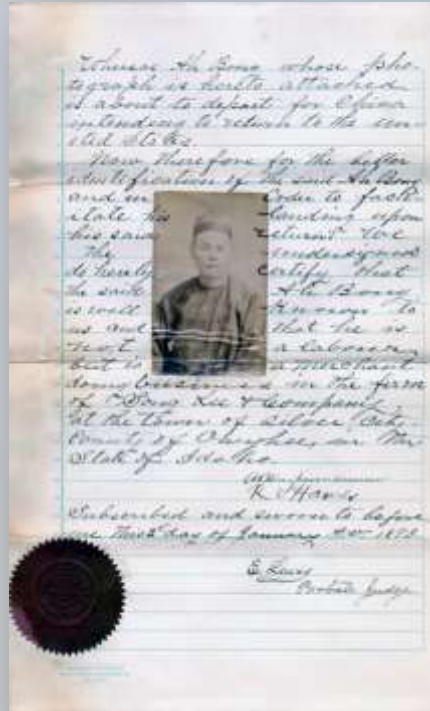 Whereas Ah Bong whose pho-
tograph is hereto attached
is about to depart for China
intending to return to the Uni-
ited States.
Now therefore for the better
identification of the said Ah Bong
and in order to facil-
itate his landing upon
his said return we
the undersigned
do hereby certify that
the said Ah Bong
is well known to
us and that he is
not a laborer,
but is a merchant
doing business in the firm
of Lee & Company
at the town of Silver City
County of Owyhee, in the
State of Idaho.
Subscribed and sworn to before
me this day of January
E. Lewis
Probate Judge